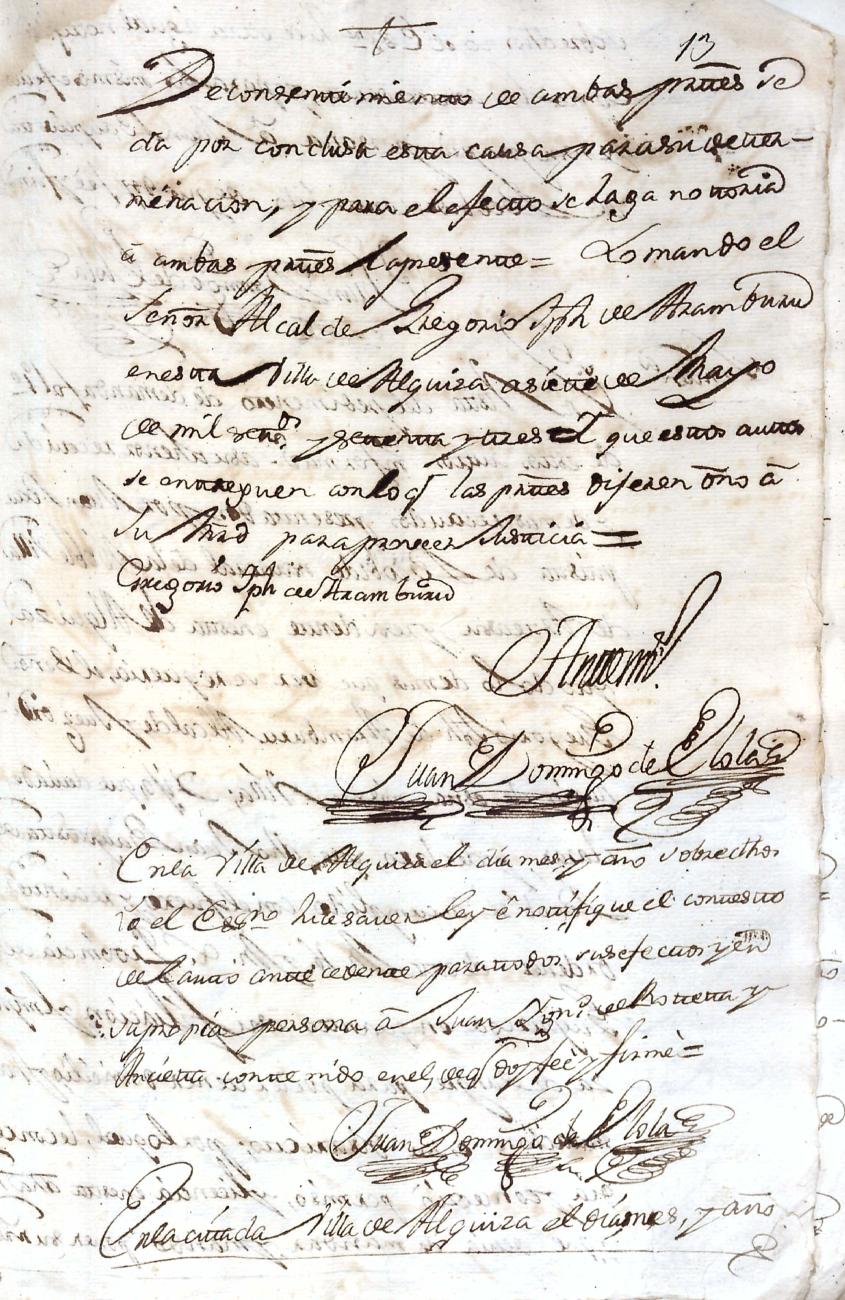 13
De consentimiento de ambas partes se
da por conclusa esta causa para su deter-
minacion, y para el efecto se haga notoria
â ambas partes la presente = Lo mando el
Señor Alcalde Gregorio Jph de Aramburu
en esta Villa de Alquiza a siete de Mayo
de mil setos y setenta y tres = Y que estos autos
se entreguen con lo q las partes dijeren ô no â
su Mrd para proveer Justicia =
Gregorio Jph de Aramburu
Antemi
Juan Domingo de Elola
En la Villa de Alquiza el dia mes y año sobredhos
Yo el Essno hice saver ley ê notifique el contesto
del auto antecedente para todos sus efectos y en
su propia persona â Juan de Rotetta y
Ancieta contenido en el, de q doy fee y firmè =
Juan Domingo de Elola
En la citada Villa de Alquiza el dia, mes, y año